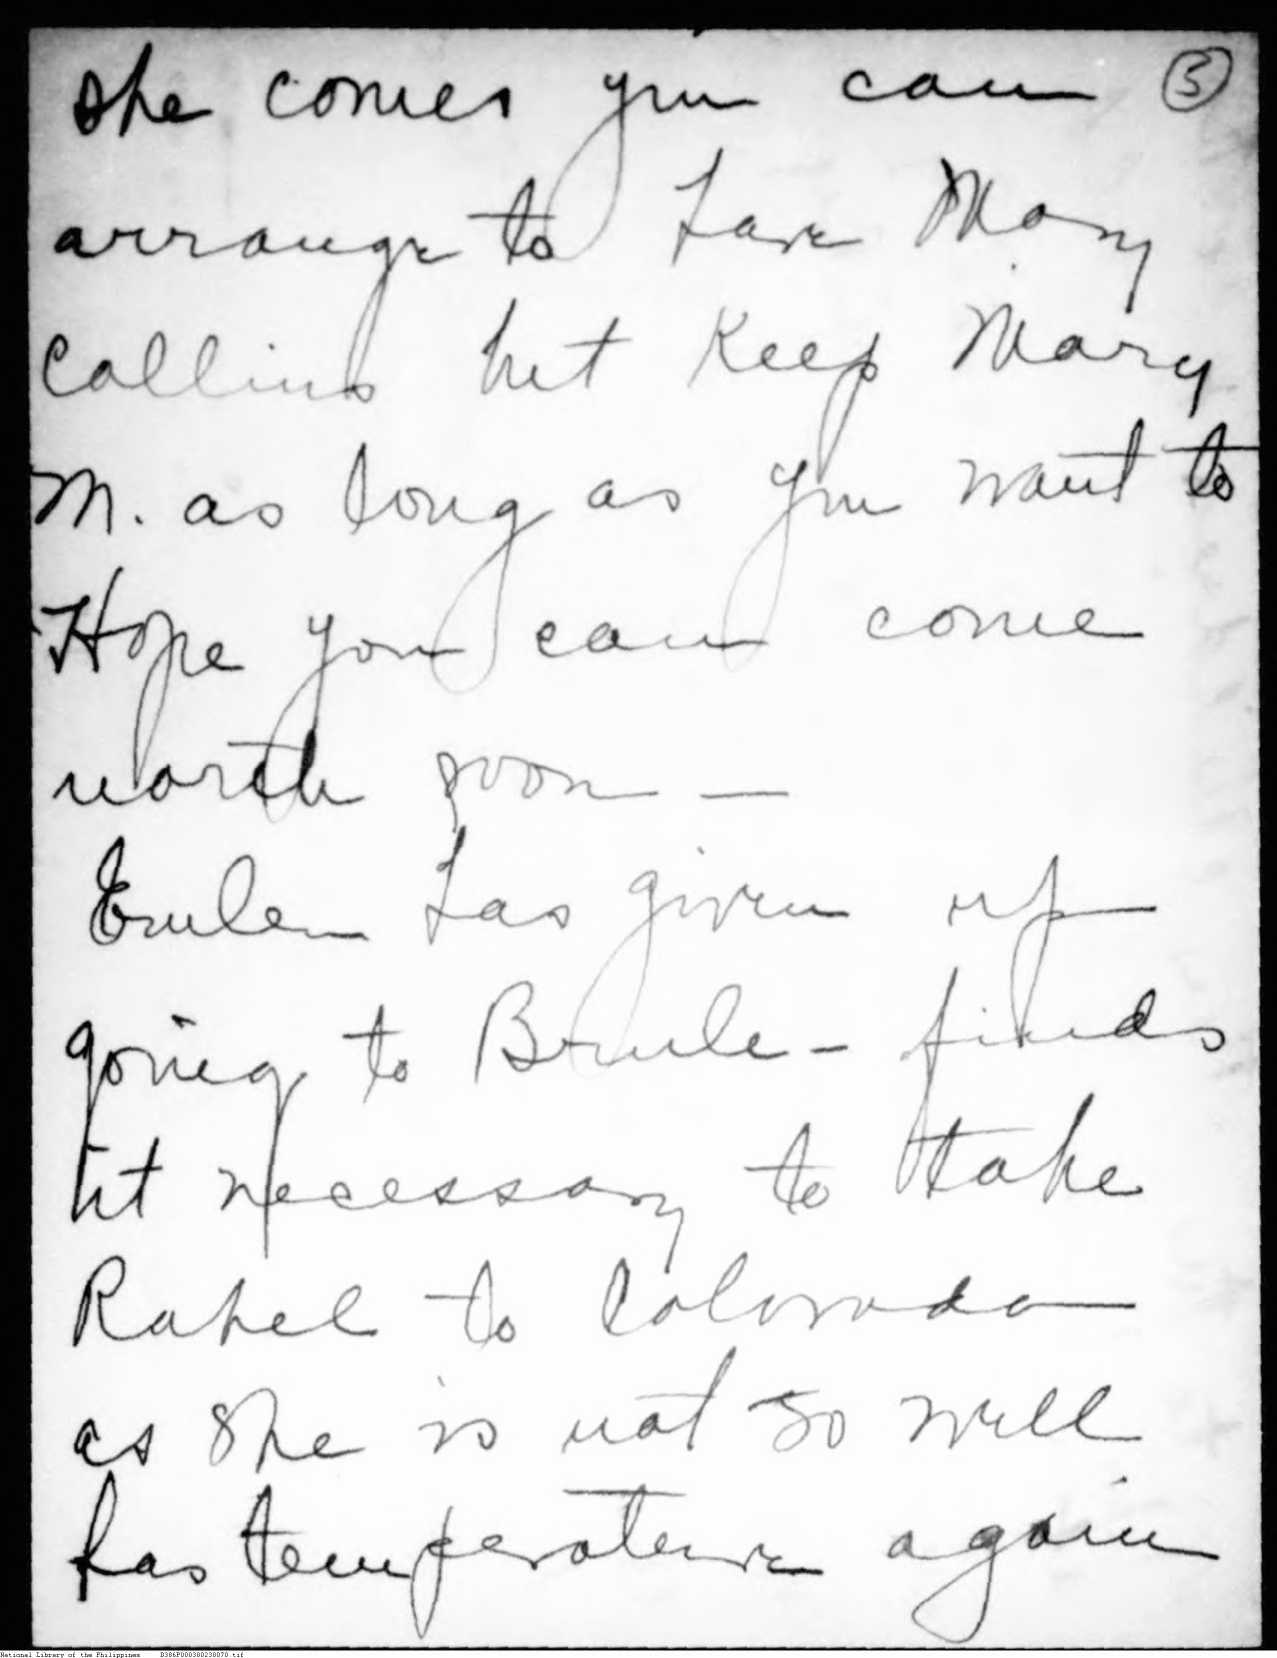 she comes you can ③
arrange to have Mary
Collins but keep Mary
M. as long as you want to
Hope you can come
north soon —
has given up
going to Brule - finds
it necessary to take
Rahel to Colorado
as she is not so well
has temperature again
National Library of the Philippines B386P000380238070.tif